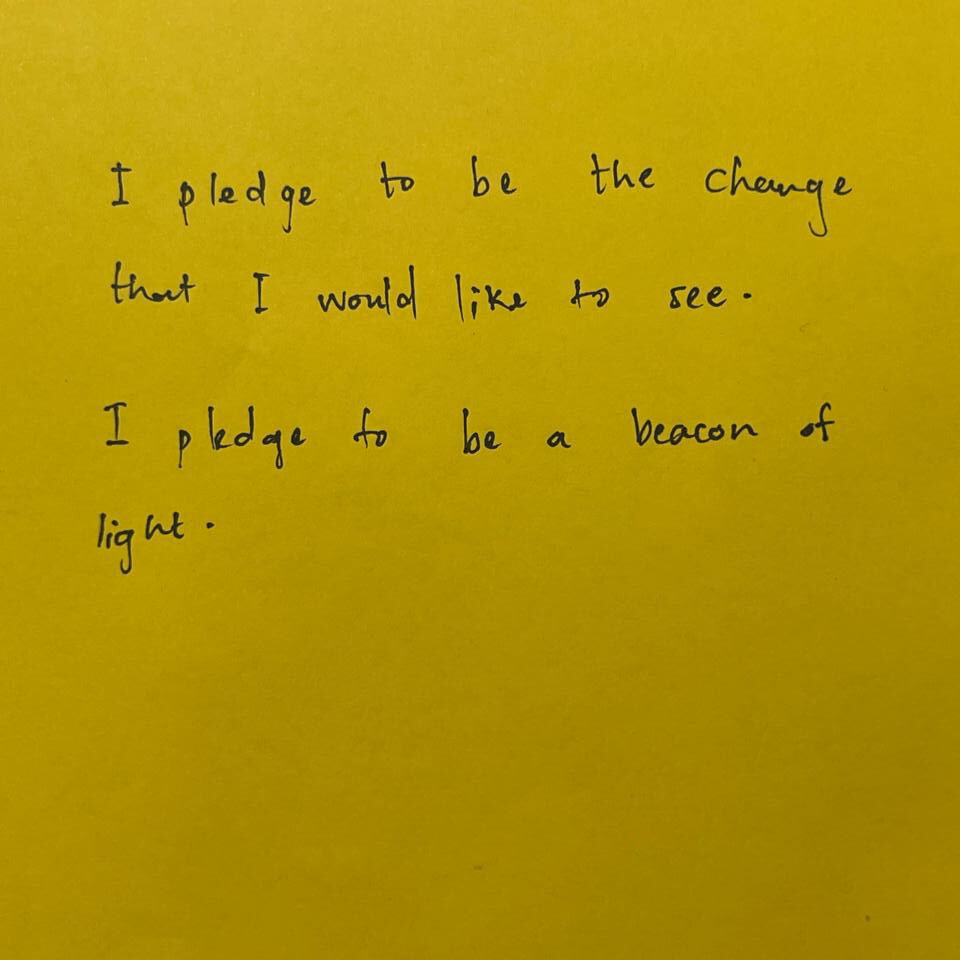 I pledge to be the change
that I would like to see.
I pledge to be a beacon of
light.